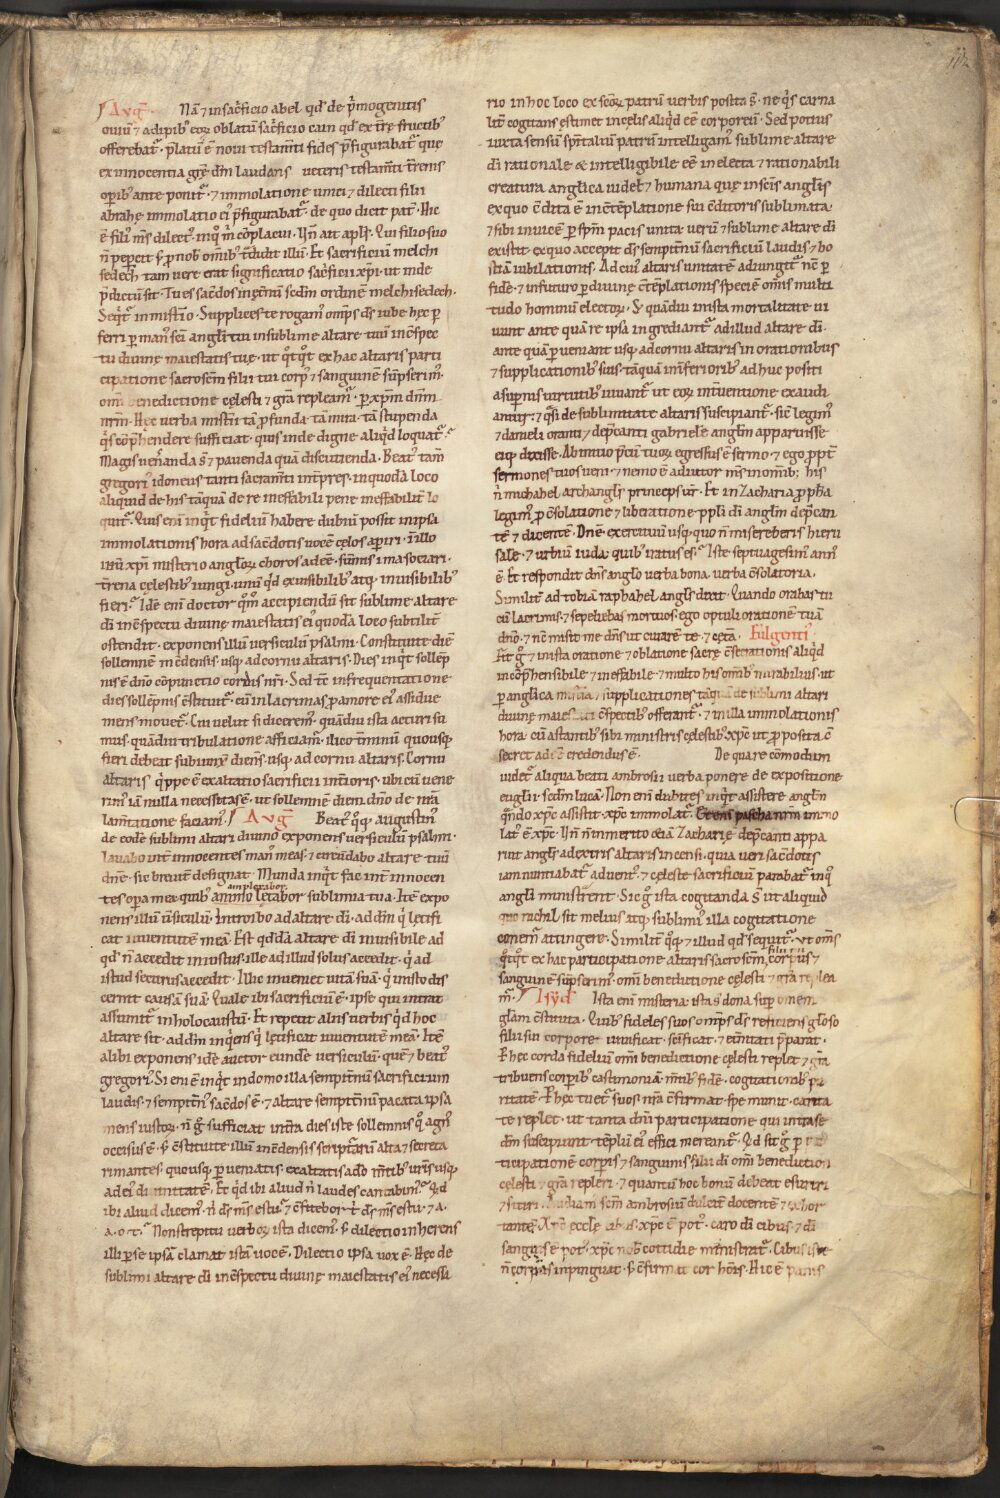 Avg̅. Nā ⁊ in sac̅ficio abel qd̅ de p̅mogenitis
ouiū ⁊ adipib' eoꝝ oblatū sac̅ficio cain qd̅ ex t̅rę fructib'
offerebat̅. p̅latū ē noui testam̅ti fides p̅figurabat̅ quę
ex innocentia gr̅ę dm̅ laudans ueteris testam̅ti t̅renis
op̅ib' ante ponit̅. ⁊ immolatione unici ⁊ dilecti filii
abrahę immolatio ei' p̅figurabat̅. de quo dicit pat̅. Hic
ē fili' m̅s dilect' in quo m̅ cōplacui. Un̅ ait apl̅s. Qui filio suo
n̅ pepercit s; p nob' om̅ib' t̅didit illū. Et sacrificiū melchi
sedech tam uere erat significatio sac̅ficii xp̅i. ut inde
p̅dictū sit. Tu es sac̅dos in et̅nū sc̅dm ordinē melchisedech.
Seq̅t̅ in mist̅io. Supplices te rogam' om̅ps d̅s iube hęc p
ferri p man' sc̅i angl̅i tui in sublime altare tuū in c̅spec
tu diuinę maiestatis tuę. ut q̅tq̅t ex hac altaris parti
cipatione sacrosc̅m filii tui corp' ⁊ sanguinē sūpserim'.
om̅i benedictione cęlesti ⁊ gr̅a repleam̅. p xp̅m dn̅m
nr̅m. Hęc uerba mist̅ii tā pfunda. tā mira. tā stupenda
q̅s cōp̅hendere sufficiat. quis inde digne aliq̅d loquat̅.
Magis uen̅anda s̅t ⁊ pauenda quā discutienda. Beat' tam̅
gregori' idoneus tanti sacram̅ti int̅pres. in quodā loco
aliquid de his tāquā de re ineffabili pene ineffabilit̅ lo
quit̅. Quis eni̅ inq̅t fideliū habere dubiū possit in ipsa
immolationis hora ad sac̅dotis uocē cęlos apiri. in illo
ih̅u xp̅i misterio angloꝝ choros adeē. sūmis ima sociari.
t̅rena cęlestib' iungi. unū qd̅ ex uisibilib' atq; inuisibilib'
fieri. Idē eni̅ doctor q̅m̅ accipiendū sit sublime altare
di̅ in c̅spectu diuinę maiestatis ei' quodā loco subtilit̅
ostendit. exponens illū uersiculū psalmi. Constituite diē
sollemnē in cōdensis usq; ad cornu altaris. Dies inq̅t sollēp
nis ē dn̅o cōpunctio cordis nr̅i. Sed t̅c in frequentatione
dies sollēpnis c̅stituit̅. cū in lacrimas p amore ei' assidue
mens mouet̅. Cui uelut si dicerem'. quādiu ista acturi su
mus. quādiu tribulatione afficiam̅. ilico t̅minū quousq;
fieri debeat subiunx̅ dicens. usq; ad cornu altaris. Cornu
altaris q̅ppe ē exaltatio sacrificii int̅ioris. ubi cū uene
rim' iā nulla necessitas ē. ut sollemnē diem dn̅o de nr̅a
lam̅tatione faciam'. Avg̅ Beat' q̅q; augustin'
de eodē sublimi altari diuino exponens uersiculū psalmi.
lauabo int̅ innocentes man' meas ⁊ circūdabo altare tuū
dn̅e. sic breuit̅ designat. Munda inq̅t fac int̅ innocen
tes opa mea. quib' amplexabor animo lętabor sublimia tua. Itē expo
nens illū ūsiculū. Introibo ad altare di̅. ad dm̅ q̅ lętifi
cat iuuentutē meā. Est qd̅dā altare di̅ inuisibile ad
qd̅ n̅ accedit iniustus. ille ad illud solus accedit. q̅ ad
istud securus accedit. Illic inueniet uitā suā. q̅ in isto dis
cernit causā suā. Quale ibi sacrificiū ē. ipse qui intrat
assumit̅ in holocaustū. Et repetit aliis uerbis q̅d hoc
altare sit. ad dm̅ inq̅ens q̅ lętificat iuuentutē meā. Itē
alibi exponens idē auctor eundē uersiculū. quē ⁊ beat'
gregori'. Si eni̅ ē inq̅t in domo illa sempit̅nū sacrificium
laudis. ⁊ sempit̅n' sac̅dos ē. ⁊ altare sempit̅nū pacata ipsa
mens iustoꝝ. n̅ g̅ sufficiat inc̅ra dies iste sollemnis q̅ agn'
occisus ē. s; c̅stituite illū in c̅densis scripturarū alta ⁊ secreta
rimantes. quousq; pueniatis exaltatis ad d̅ m̅tib' ur̅is usq;
ad ei' diuinitatē. Et q̅d ibi aliud n̅ laudes cantabim'. Qd̅
ibi aliud dicem'. n̅ d̅s m̅s es tu ⁊ c̅fitebor t̅. d̅s m̅s es tu. ⁊ a.
a. o. t. Non strepitu uerboꝝ ista dicem'. s; dilectio inherens
illi p se ipsā clamat istā uocē. Dilectio ipsa uox ē. Hęc de
sublimi altare di̅ in c̅spectu diuinę maiestatis ei' necessa
rio in hoc loco ex sc̅oꝝ patrū uerbis posita s̅t. ne q̅s carna
lit̅ cogitans estimet in cęlis aliq̅d eē corporeū. Sed potius
iuxta sensū sp̅italiū patrū intelligam' sublime altare
di̅ rationale & intelligibile eē in electa ⁊ rationabili
creatura anglica uidel; ⁊ humana quę in sc̅is angl̅is
ex quo c̅dita ē in c̅tēplatione sui c̅ditoris sublimata.
⁊ sibi inuicē p sp̅m pacis unita uerū ⁊ sublime altare di̅
existit. ex quo accepit d̅s sempit̅nū sacrificiū laudis ⁊ ho
stiā iubilationis. Ad cui' altaris unitatē adiungit̅ n̅c p
fidē. ⁊ in futuro p diuinę c̅tēplationis speciē om̅is multi
tudo hominū electoꝝ. S; quādiu in ista mortalitate ui
uunt ante quā re ipsa ingrediant̅ ad illud altare di̅.
ante quā pueniant usq; ad cornu altaris in orationibus
⁊ supplicationib' suis tāquā in inferiorib' adhuc positi
a supnis uirtutib' iuuant̅ ut eoꝝ int̅uentione exaudi
antur. ⁊ q̅si de sublimitate altaris suscipiant̅. sic̅ legim'
⁊ danieli oranti ⁊ dep̅canti gabrielē anglm̅ apparuisse
eiq; dixisse. Ab initio p̅cū tuoꝝ egressus ē sermo ⁊ ego pp̅t
sermones tuos ueni. ⁊ nemo ē adiutor m̅s in om̅ib; his
n̅ michahel archangl̅s princeps ur̅. Et in Zacharia pph̅a
legim' p c̅solatione ⁊ liberatione ppli di̅ anglm̅ dep̅can
tē ⁊ dicentē. Dn̅e exercituū usq; quo n̅ misereberis hieru
salē. ⁊ urbiū iuda. quib' iratus es. Iste septuagesim' ann'
ē. Et respondit dn̅s anglo uerba bona. uerba c̅solatoria.
Similit̅ ad tobiā raphahel angl̅s dixit. Quando orabas tu
cū lacrimis. ⁊ sepeliebas mortuos. ego optuli orationē tuā
dn̅o. ⁊ n̅c misit me dn̅s ut curarē te. ⁊ cęta. Fulgenti'.
Fit g̅ ⁊ in ista oratione ⁊ oblatione sacrę c̅secrationis aliq̅d
incōp̅hensibile ⁊ ineffabile. ⁊ multo his om̅ib' mirabilius. ut
p anglica ⁊ supplicationes tāquā de sublimi altari
diuinę maiestatis c̅spectib' offerant̅. ⁊ in illa immolationis
hora cū astantib' sibi ministris cęlestib' xp̅c ut pposita c̅
secret adeē credendus ē. De qua re cōmodum
uidet̅ aliqua beati ambrosii uerba ponere de expositione
euglii sc̅dm lucā. Non eni̅ dubites inq̅t assistere anglm̅
q̅ndo xp̅c assistit. xp̅c immolat̅. Eteni̅ pascha nr̅m immo
lat' ē xp̅c. Un̅ n̅ inmerito & iā Zacharię dep̅canti appa
ruit angl̅s a dextris altaris incensi. quia ueri sac̅dotis
iam nuntiabat̅ aduent'. ⁊ cęleste sacrificiū parabat̅ in quo
angli ministrent. Sic g̅ ista cogitanda s̅t ut aliquid
quo nichil sit melius atq; sublimi' illa cogitatione
conem̅ attingere. Similit̅ q̅q; ⁊ illud qd̅ sequit̅. ut om̅s
q̅tq̅t ex hac participatione altaris sacrosc̅m filii tui corpus ⁊
sanguinē sūpserim'. om̅i benedictione cęlesti ⁊ gr̅a replea
m̅. Isyd̅ Ista eni̅ misteria. ista s̅t dona sup omnem
glam c̅stituta. Quib' fideles suos om̅ps d̅s reficiens gl̅oso
filii sui corpore uiuificat. sc̅ificat. ⁊ eunitati p̅parat.
Hęc corda fideliū om̅i benedictione cęlesti replet ⁊ gr̅a
tribuens corpib' castimoniā. m̅tib' fidē. cogitationib' pu
ritatē. Hęc tuet̅ suos. nr̅a c̅firmat. spe munit. carita
te replet. ut tanta dn̅i participatione qui in ta se
dm̅ suscipiunt. tēplū ei' effici mereant̅. Qd̅ sit g̅ p par
ticipationē corpis ⁊ sanguinis filii di̅ om̅i benediction
cęlesti ⁊ gr̅a repleri. ⁊ quantū hoc bonū debeat esuriri
⁊ sitiri. Audiam' sc̅m ambrosiū dulcit̅ docentē ⁊ exhor
tantē. Xp̅c ecclę cibus xp̅c ē pot'. caro di̅ cibus ⁊ di̅
sanguis ē pot'. xp̅c nob' cottidie ministrat̅. Cibus iste
n̅ corpus inpinguat. s; c̅firmat cor ho̅is. Hic ē panis